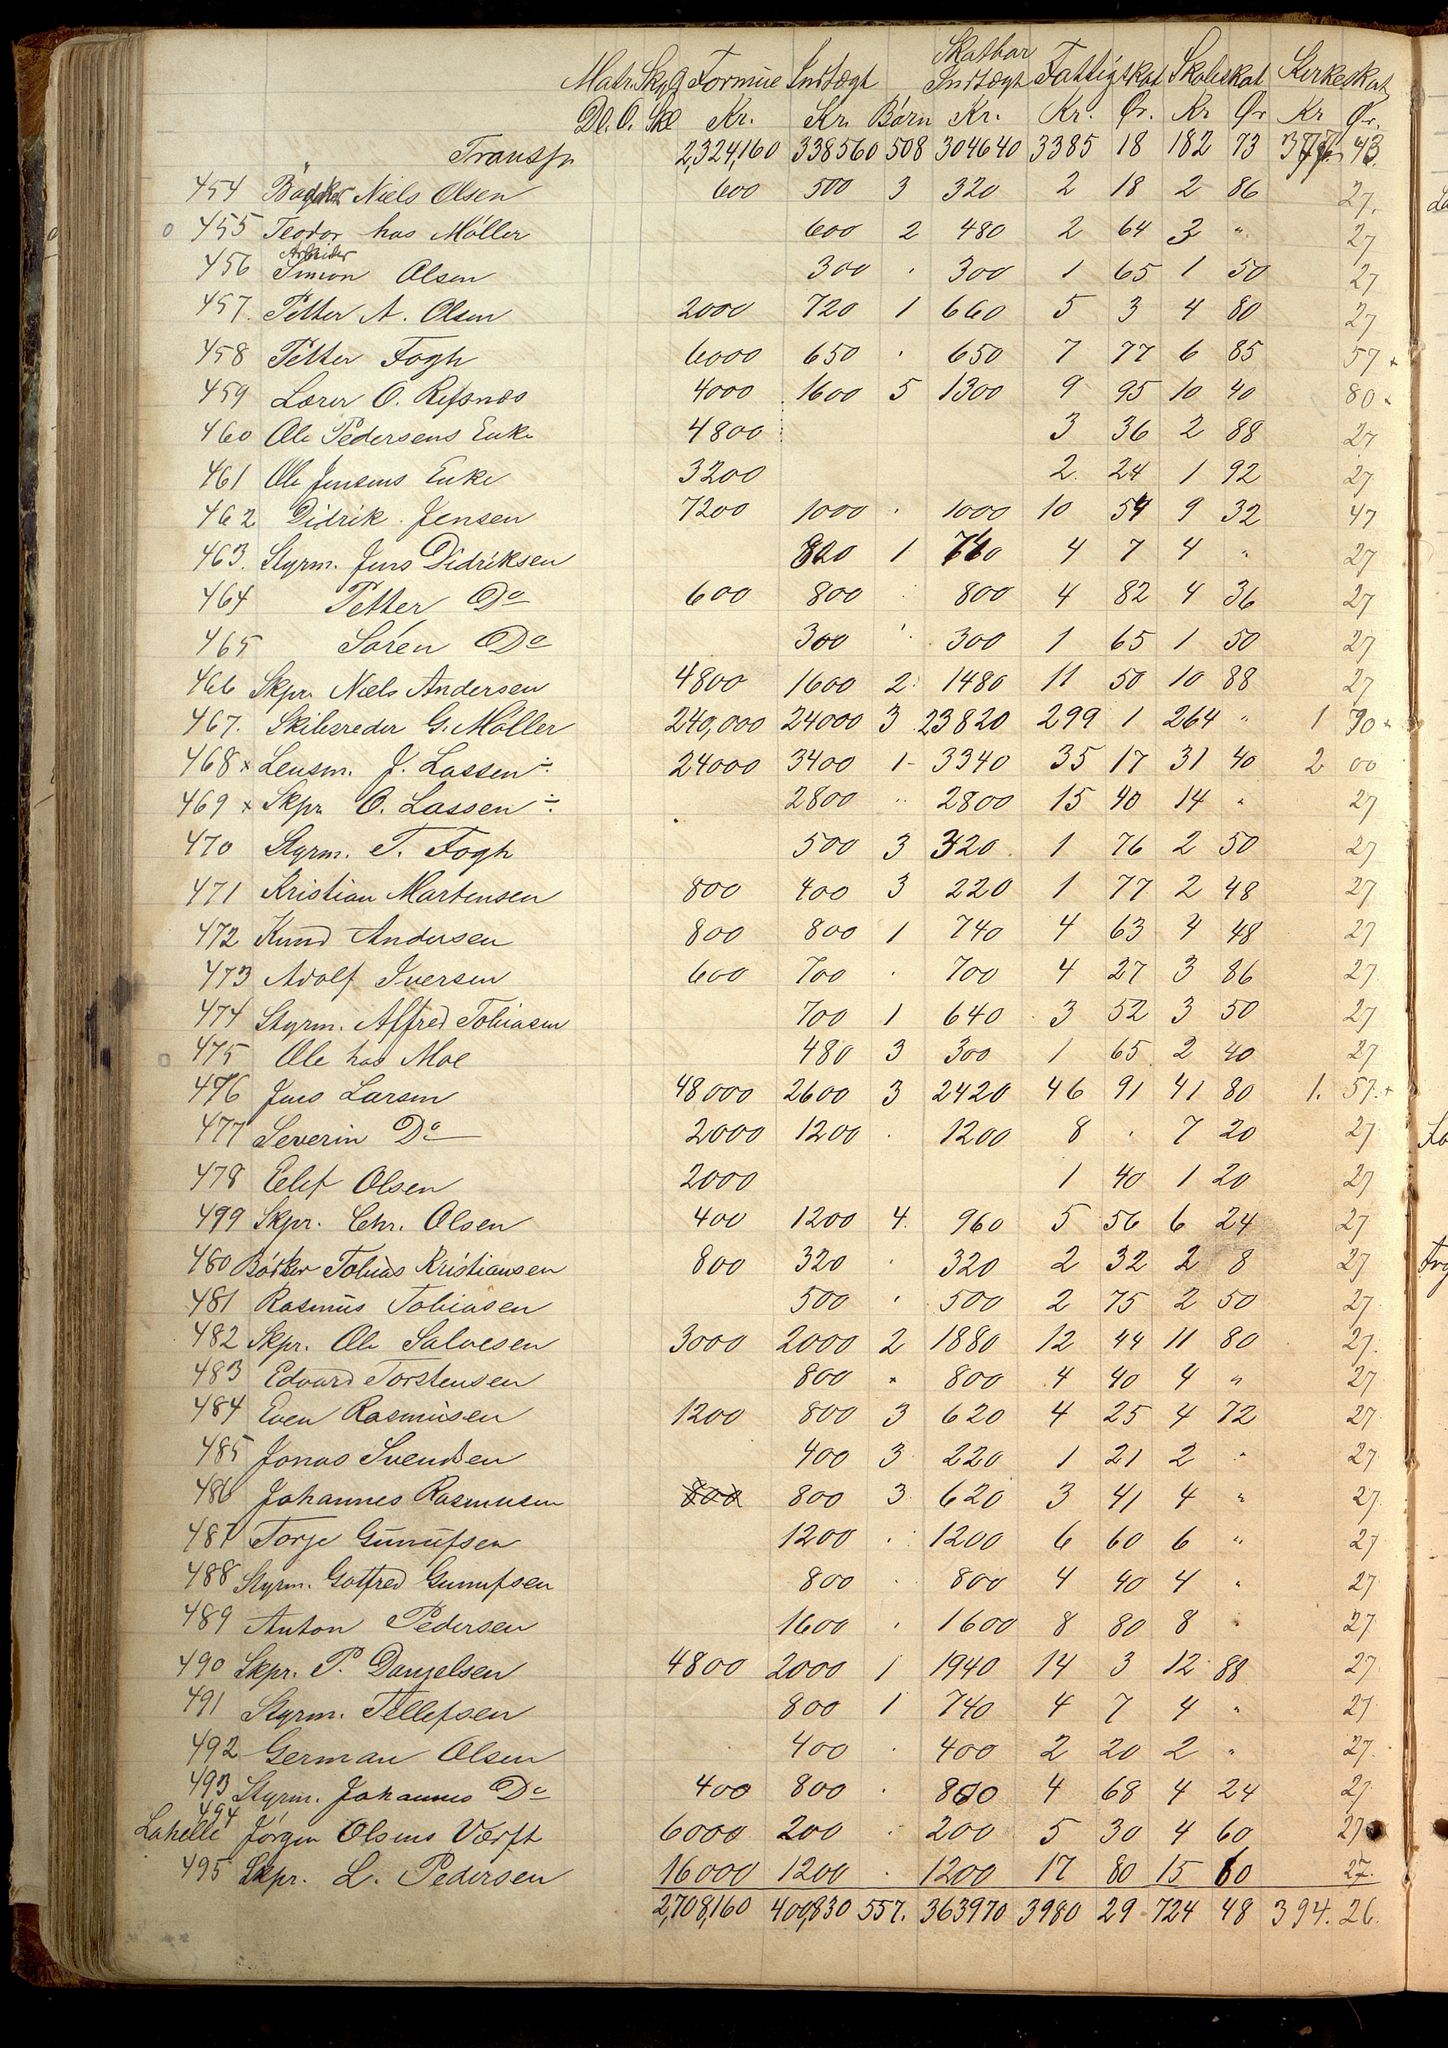 Matr. Skyld Formue Indtægt Skatbar Indtægt Fattigskat Skoleskat Kirkeskat
Dl. O. Skl Kr. Kr. Børn Kr. Kr. Ør. Kr Ør Kr Ør.
Transp 2,324,160 338560 508 304640 3385 18 182 73 43.
454 Niels Olsen 600 500 3 320 2 18 2 86 27.
o 455 Teodor hos Møller 600 2 480 2 64 3 " 27
456 Arbeider Simon Olsen 300 . 300 1 65 1 50 27
457. Petter A. Olsen 2000 720 1 660 5 3 4 80 27
458 Petter Fogh 6000 650 . 650 7 77 6 85 57 +
459 Lærer O. Refsnæs 4000 1600 5 1300 9 95 10 40 80 ×
460 Ole Pedersens Enke 4800 3 36 2 88 27
461 Ole Jensens Enke 3200 2. 24 1 92 27
462 Didrik Jensen 7200 1000 . 1000 10 54 9 32 47
463. Styrm. Jens Didriksen 820 1 760 4 7 4 " 27
464 Petter Do 600 800 . 800 4 82 4 36 27
465 Søren Do 300 . 300 1 65 1 50 27
466 Skpr. Niels Andersen 4800 1600 2. 1480 11 50 10 88 27
467. Skibsreder G. Møller 240,000 24000 3 23820 299 1 264 " 1 90 ×
468 × Lensm. J. Lassen ÷ 24000 3400 1 - 3340 35 17 31 40 2 00
469 × Skpr O. Lassen ÷ 2800 .. 2800 15 40 14 " 27
470 Styrm. T. Fogh 500 3 320. 1 76 2 50 27
471 Kristian Martensen 800 400 3 220 1 77 2 48 27
472 Knud Andersen 800 800 1 740 4 63 4 48 27
473 Adolf Iversen 600 700 . 700 4 27 3 86 27.
474 Styrm. Alfred Tobiasen 700 1 640 3 52 3 50 27
o 475 Ole hos Moe 480 3 300 1 65 2 40 27
476 Jens Larsen 48000 2600 3 2420 46 91 41 80 1. 57. +
477 Severin Do 2000 1200 . 1200 8 . 7 20 27
478 Eelef Olsen 2000 1 40 1 20 27
499 Skpr. Chr. Olsen 400 1200 4. 960 5 56 6 24 27
480 Børker Tobias Kristiansen 800 320 . 320 2 32 2 8 27
481 Rasmus Tobiasen 500 . 500 2 75 2 50 27
482 Skpr. Ole Salvesen 3000 2000 2 1880 12 44 11 80 27.
483 Edvard Torstensen 800 " 800 4 40 4 " 27
484 Even Rasmusen 1200 800 3 620 4 25 4 72 27
485 Jonas Svendsen 400 3 220 1 21 2 " 27
486 Johannes Rasmusen 800 800 3 620 3 41 4 " 27.
487 Torje Gunulfsen 1200 . 1200 6 60 6 " 27
488 Styrm. Gotfred Gunulfsen 800 . 800 4 40 4 " 27
489 Anton Pedersen 1600 . 1600 8 80 8 " 27.
490 Skpr. P. Danjelsen 4800 2000 1 1940 14 3 12 88 27.
491 Styrm. Tellefsen 800 1 740 4 7 4 " 27
492 German Olsen 400 . 400 2 20 2 " 27.
493 Styrm. Johannes Do 400 800 . 800 4 68 4 24 27
494
Lahelle Jørgen Olsens Værft 6000 200 . 200 5 30 4 60 27
495 Skpr. L. Pedersen 16000 1200 . 1200 17 80 15 60 27.
2,708,160 400,830 557. 363970 3980 29 724 48 394. 26.